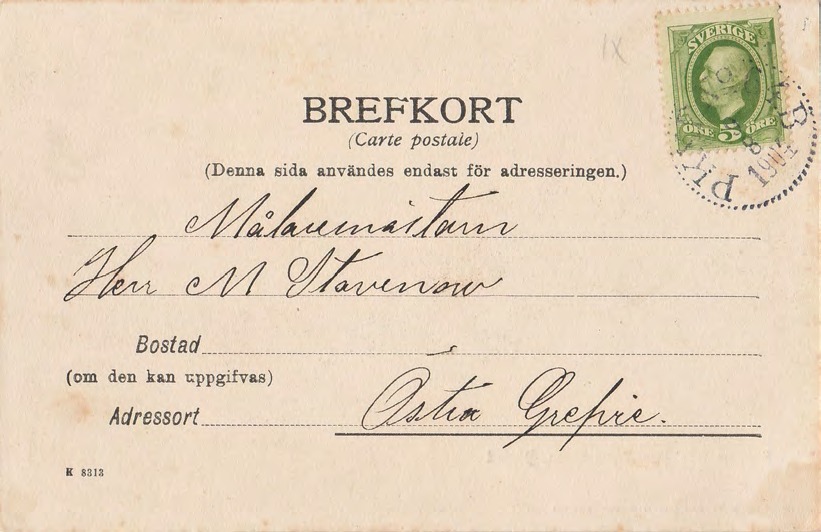 IX
SVERIGE
ÖRE 5 ÖRE
PKXP
8
1904
BREFKORT
(Carte postale)
(Denna sida användes endast för adresseringen.)
Målaremästarn
Herr M Stavenow
Bostad
(om den kan uppgifvas)
Adressort Östra Grefvie.
K 8313